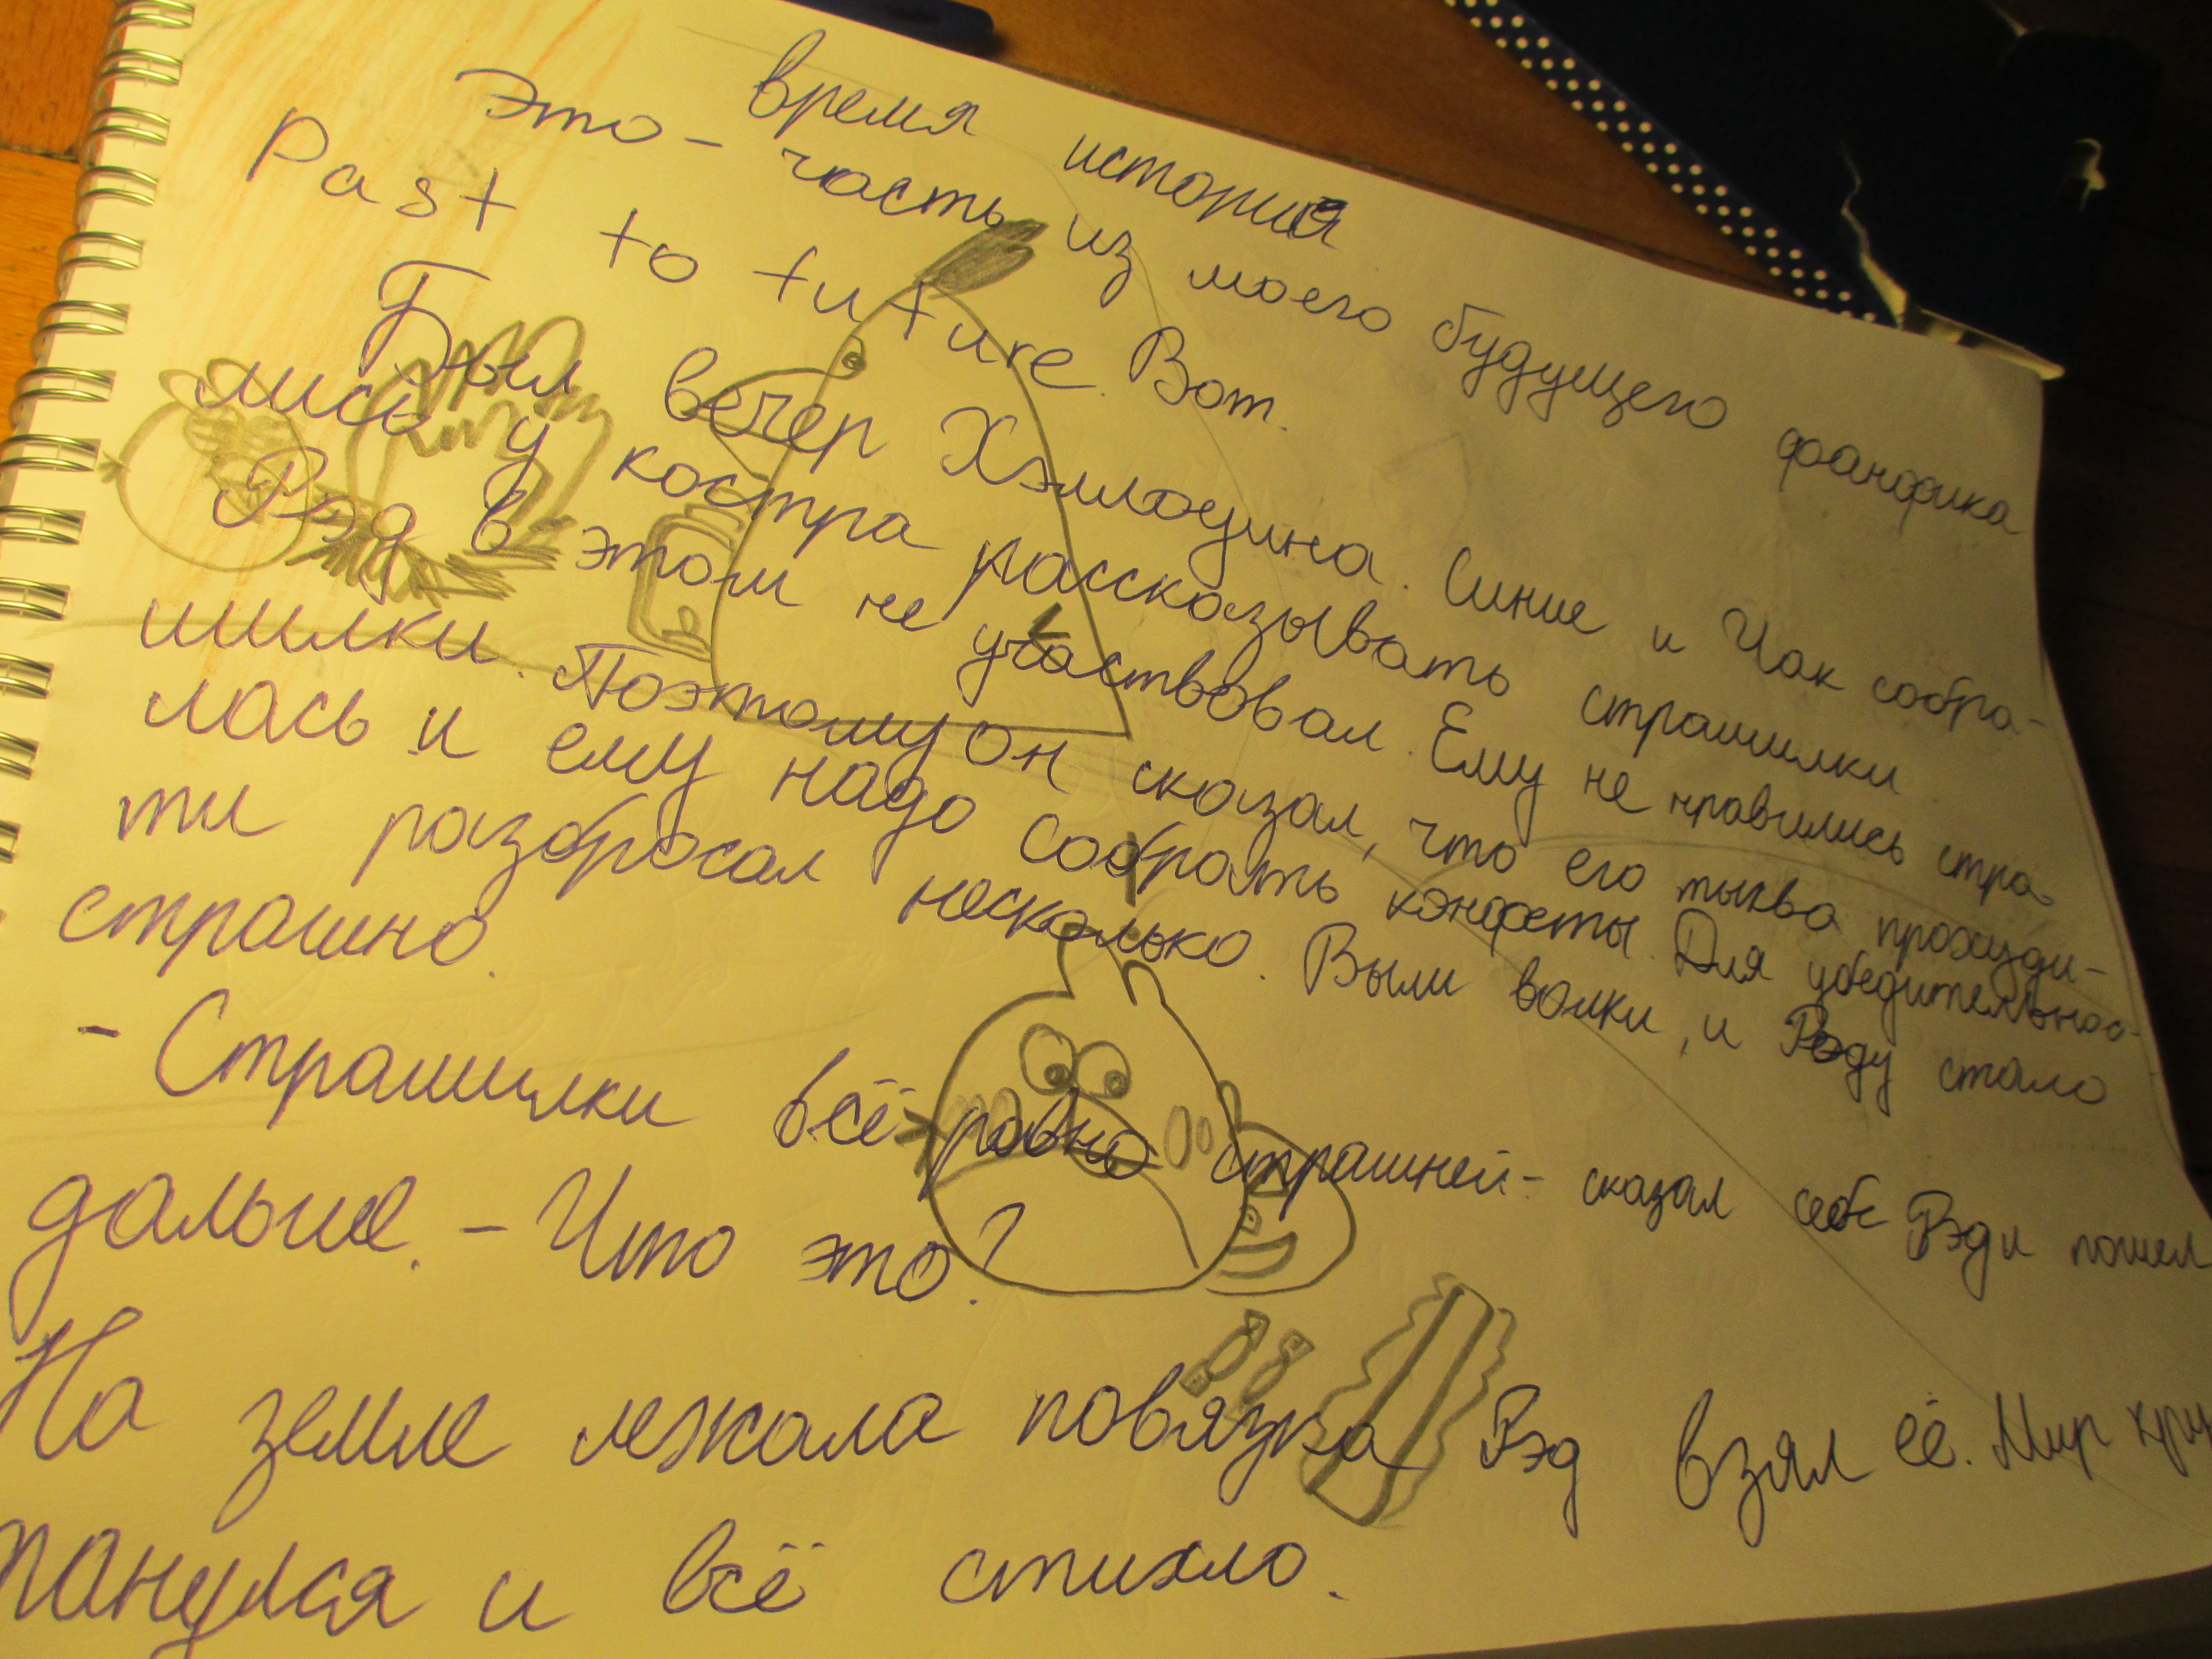 время история
Это - часть из моего будущего фанфика
Past to future. Вот.
Был вечер Хэллоуина. Синие и Чак собра-
лись у костра рассказывать страшилки.
Рэд в этом не участвовал. Ему не нравились стра-
шилки. Поэтому он сказал, что его тыква прохуди-
лась и ему надо собрать конфеты. Для убедительнос-
ти разбросал несколько. Выли волки, и Рэду стало
страшно.
- Страшилки всё равно страшней - сказал себе Рэд и пошел
дальше. - Что это?
На земле лежала повязка Рэд взял её. Мир кру
танулся и всё стихло.